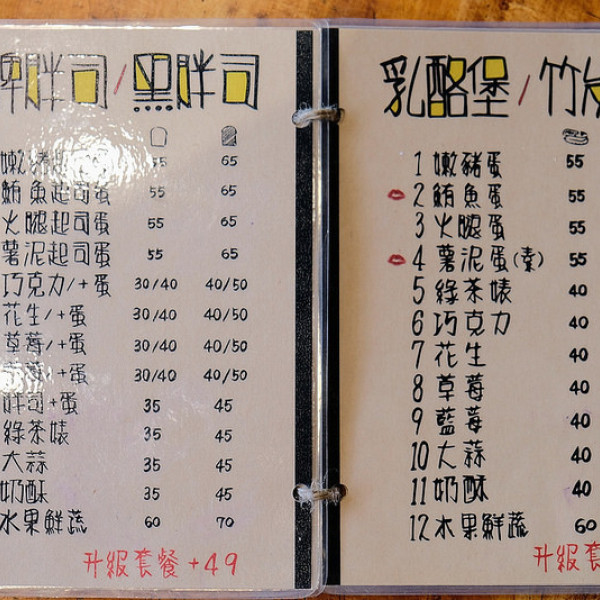 胖司/黑胖司
嫩豬起司蛋 55 65
鮪魚起司蛋 55 65
火腿起司蛋 55 65
薯泥起司蛋 55 65
巧克力/+蛋 30/40 40/50
花生/+蛋 30/40 40/50
草莓/+蛋 30/40 40/50
莓/+蛋 30/40 40/50
胖司+蛋 35 45
綠茶婊 35 45
大蒜 35 45
奶酥 35 45
水果鮮蔬 60 70
升級套餐+49
乳酪堡/竹炭
1 嫩豬蛋 55
2 鮪魚蛋 55
3 火腿蛋 55
4 薯泥蛋(素) 55
5 綠茶婊 40
6 巧克力 40
7 花生 40
8 草莓 40
9 藍莓 40
10 大蒜 40
11 奶酥 40
12 水果鮮蔬 60
升級套